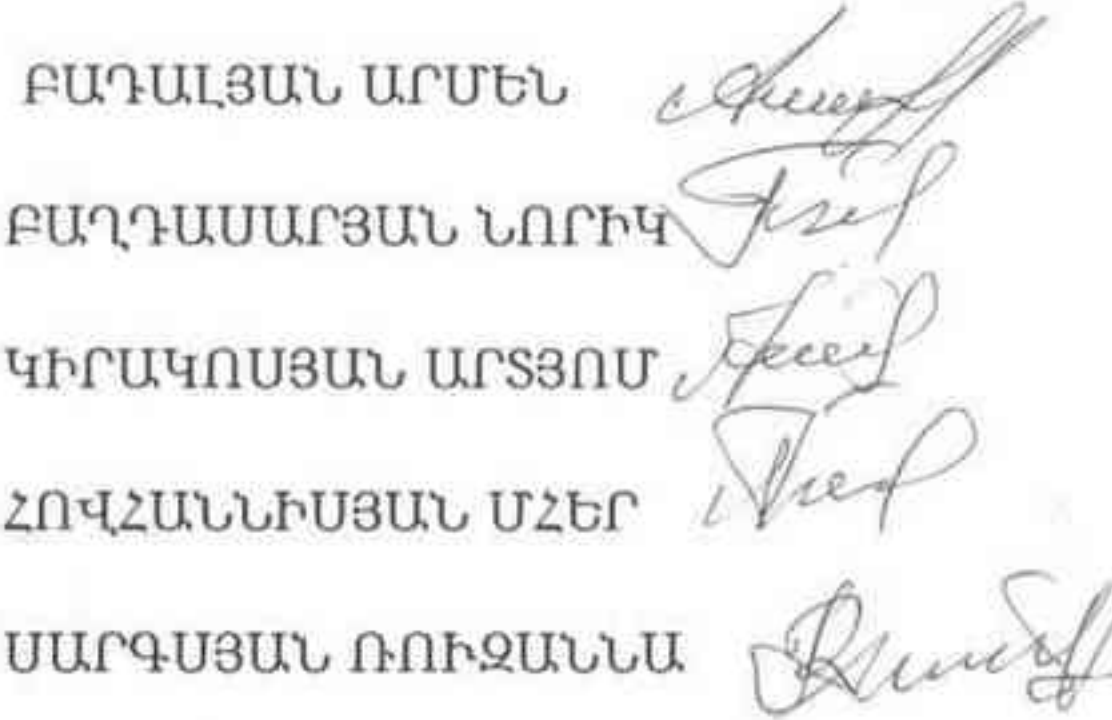 ԲԱԴԱԼՅԱՆ ԱՐՄԵՆ
ԲԱՂԴԱՍԱՐՅԱՆ ՆՈՐԻԿ
ԿԻՐԱԿՈՍՅԱՆ ԱՐՏՅՈՄ
ՀՈՎՀԱՆՆԻՍՅԱՆ ՄՀԵՐ
ՍԱՐԳՍՅԱՆ ՌՈՒԶԱՆՆԱ